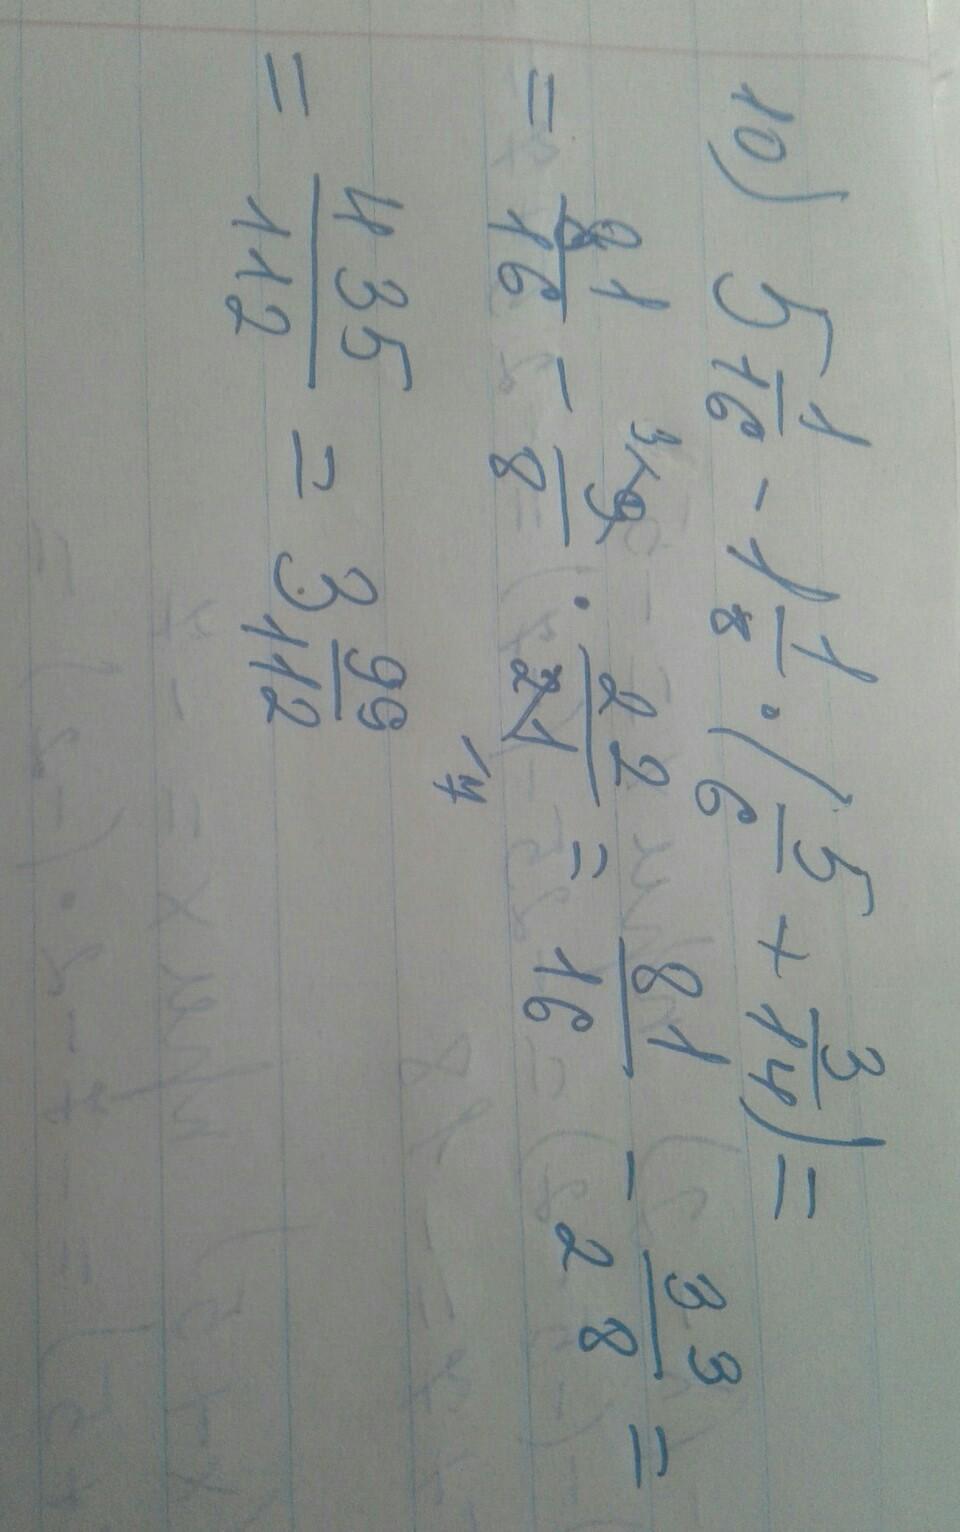 10) 5 1/16 - 1 1/8 · (5/6 + 3/14) =
= 81/16 - 9/8 · 22/21 = 81/16 - 33/28 =
3 7
= 435/112 = 3 99/112